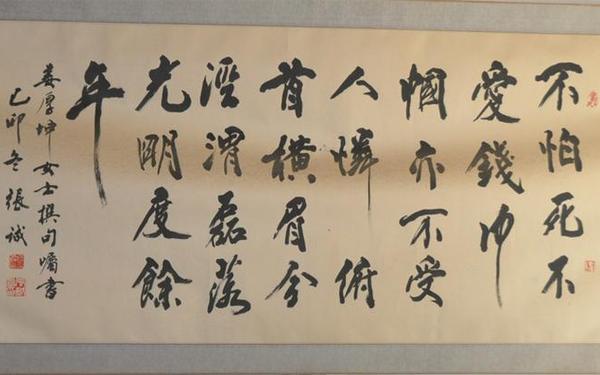 不怕死不
愛錢巾
幗亦不受
人憐俯
首橫眉分
涇渭磊落
光明度餘
年
婁厚坤女士撰句囑書
己卯冬張誠